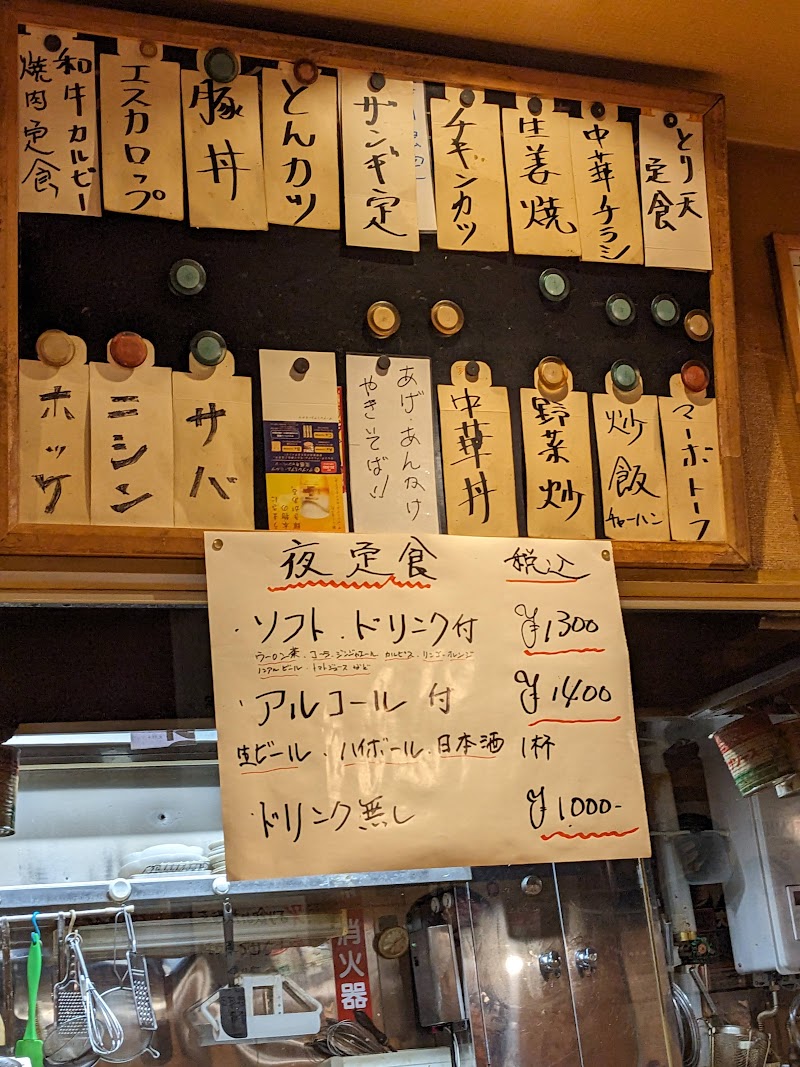 とり天
定食
中華チラシ
生姜焼
チキンカツ
ザンギ定
とんカツ
豚丼
エスカロップ
和牛カルビー
焼肉定食
マーボトーフ
炒飯
チャーハン
野菜炒
中華丼
あげ・あんかけ
やきそば!!
サバ
ニシン
ホッケ
夜定食 税込
・ソフト・ドリンク付 ¥1300
ウーロン茶・コーラ・ジンジャエール カルピス・リンゴ・オレンジ
ノンアルビール・トマトジュースなど
・アルコール付 ¥1400
生ビール・ハイボール・日本酒 1杯
ドリンク無し ¥1.000-
消火器